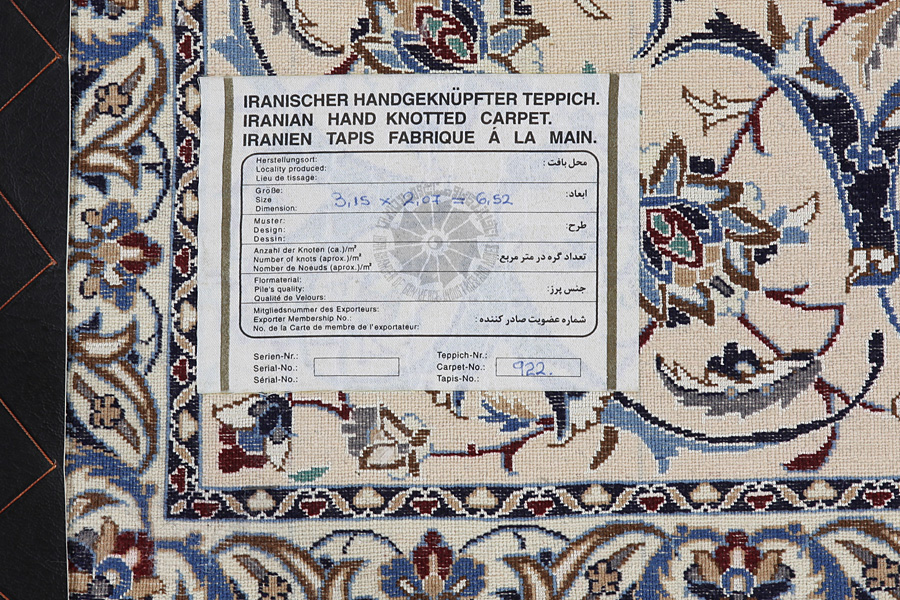 IRANISCHER HANDGEKNÜPFTER TEPPICH.
IRANIAN HAND KNOTTED CARPET.
IRANIEN TAPIS FABRIQUE Á LA MAIN.
Herstellungsort:
Locality produced:
Lieu de tissage:
محل بافت :
Größe:
Size
Dimension:
3,15 x 2,07 = 6,52
ابعاد:
Muster:
Design:
Dessin:
طرح:
Anzahl der Knoten (ca.)/m²
Number of knots (aprox.)/m²
Nombre de Noeuds (aprox.)/m²
تعداد گره در متر مربع:
Flormaterial:
Pile's quality:
Qualité de Velours:
جنس پرز:
Mitgliedsnummer des Exporteurs:
Exporter Membership No.:
No. de la Carte de membre de l'exportateur:
شماره عضویت صادر کننده :
Serien-Nr.:
Serial-No.:
Sérial-No.:
Teppich-Nr.:
Carpet-No.: 922.
Tapis-No.: